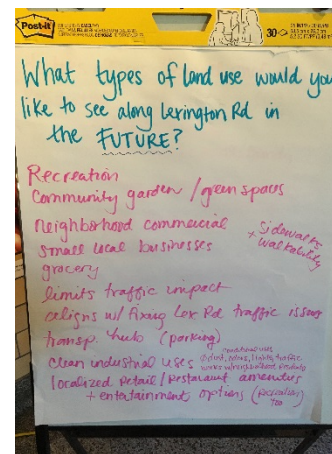 Post-it
30
What types of land use would you
like to see along Lexington Rd in
the FUTURE?
Recreation
Community garden / green spaces
neighborhood commercial
+ sidewalks
walkability
small local businesses
grocery
limits traffic impact
aligns w/ fixing Lex Rd traffic issues
transp. hub (parking)
clean industrial uses
localized retail / restaurant amenities
+ entertainment options (recreation
too)